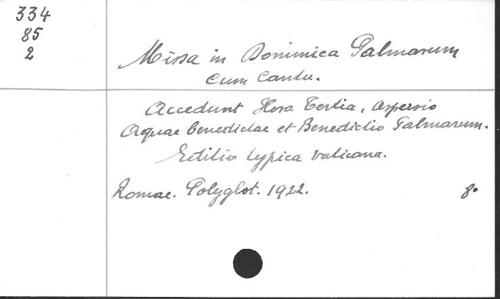 334
85
2
Missa in Dominica Palmarum
cum cantu.
Accedunt Hora Tertia, Aspersio
Aquae benedictae et Benedictio Palmarum.
Editio typica Vaticana.
Romae. Polyglot. 1922. 8°